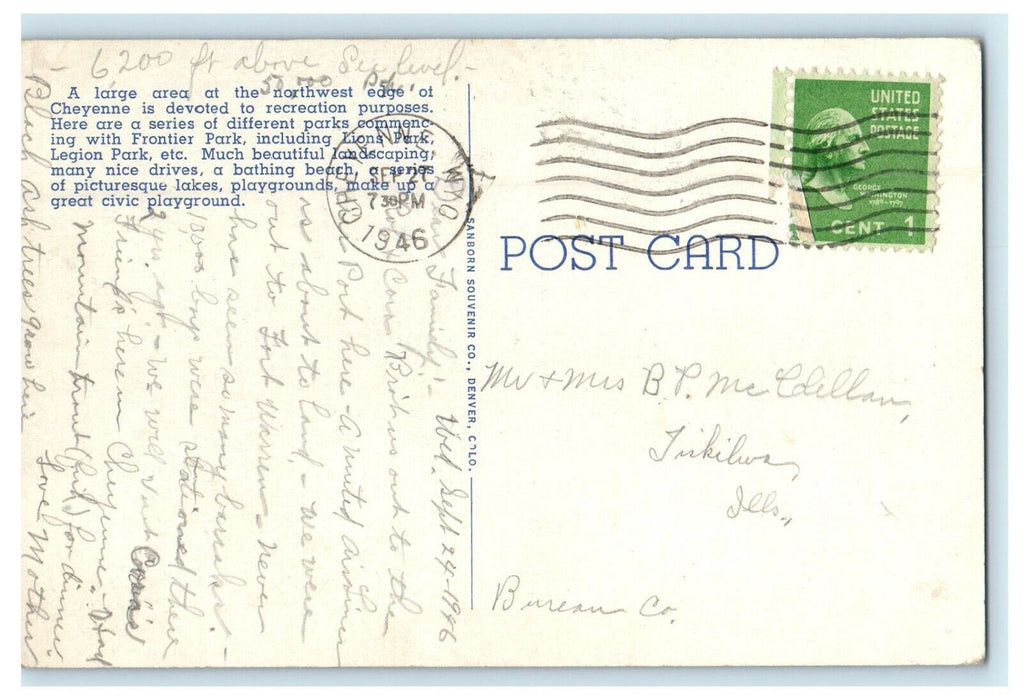 - 6200 ft above See level. -
A large area at the northwest edge of
Cheyenne is devoted to recreation purposes.
Here are a series of different parks commenc-
ing with Frontier Park, including Lions Park,
Legion Park, etc. Much beautiful landscaping,
many nice drives, a bathing beach, a series
of picturesque lakes, playgrounds, make up a
great civic playground.
CHEYENNE
WYO.
SEP 24
7 30 PM
1946
UNITED
STATES
POSTAGE
GEORGE
WASHINGTON
1789-1797
CENT 1
POST CARD
SANBORN SOUVENIR CO., DENVER, COLO.
Mr + Mrs B. P. McClellan,
Tiskilwa,
Ills.,
Bureau Co.
Wed. Sept 24 - 1946
Dear Family:-
Cora Brit us out to the
Port here - A United airliner
is about to land - we were
out to Fort Warren - never
have seen so many barracks -
13000 boys were stationed there
2 yrs ago - we will visit
Friends here in Cheyenne - Had
mountain trout for dinner
Love Mother
ash trees grow here